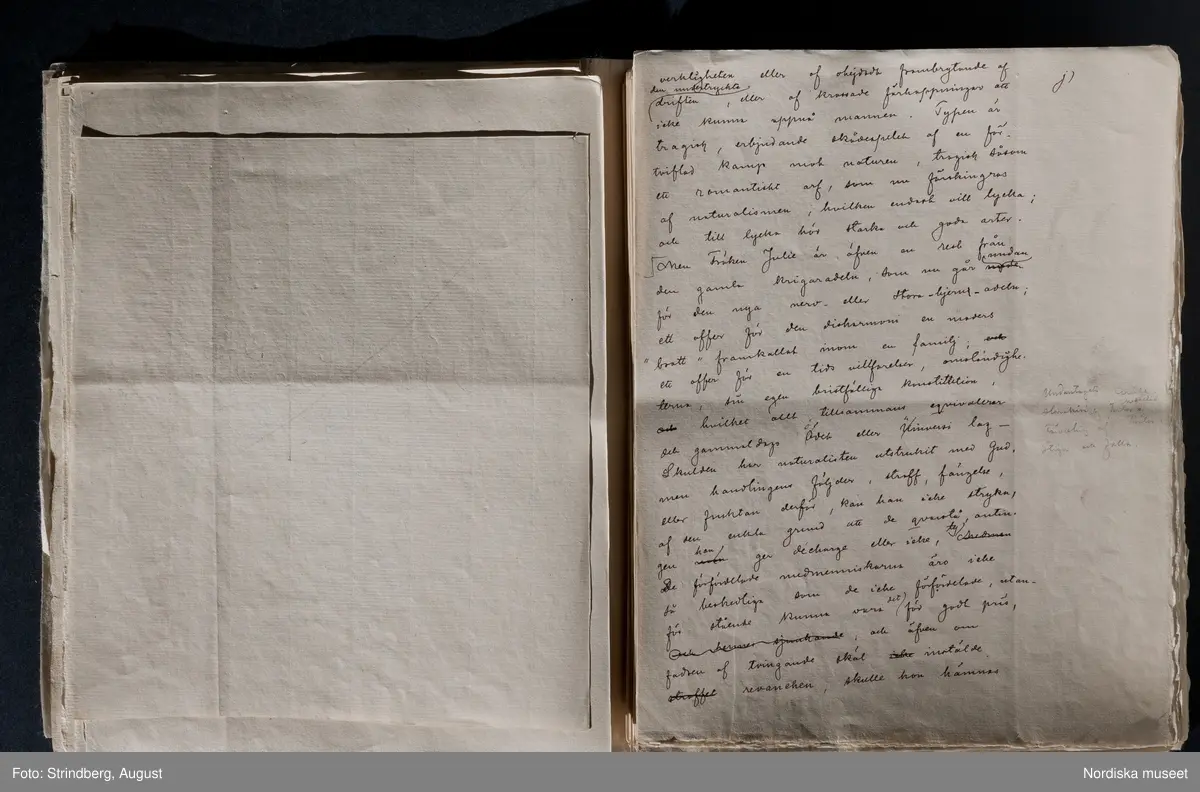 verkligheten eller af ohejdadt frambrytande af
den undertryckta
driften, eller af krossade förhoppningar att
icke kunna uppnå mannen. Typen är
tragisk, erbjudande skådespelet af en för-
tviflad kamp mot naturen, tragisk såsom
ett romantiskt arf, som nu förskingras
af naturalismen, hvilken endast vill lycka;
och till lycka hör starka och goda arter.
Men Fröken Julie är äfven en rest från
den gamla krigaradeln, som nu går undan
för den nya nerv- eller stora-hjern-adeln;
ett offer för den disharmoni en moders
"brott" framkallat inom en familj; och
ett offer för en tids villfarelser, omständighe-
terna, sin egen bristfälliga konstitution,
och hvilket allt tillsammans equivalerar
det gammaldags Ödet eller Universi lag —
Skulden har naturalisten utstrukit med Gud,
men handlingens följder, straff, fängelse,
eller fruktan derför, kan han icke stryka,
af den enkla grund att de qvarstå, anten-
gen han ger décharge eller icke, ty
De förfördelade medmenniskorna äro icke
så beskedliga som de icke förfördelade, utan-
för stående kunna vara det för godt pris,
och äfven om
fadren af tvingande skäl icke instälde
straffet revanchen, skulle hon hämnas
j)
Foto: Strindberg, August
Nordiska museet